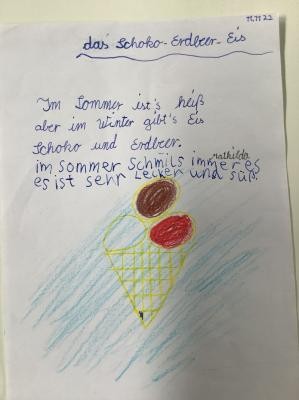 11.11.22
das Schoko-Erdbeer-Eis
Im Sommer ist's heiß
aber im Winter gibt's Eis
Schoko und Erdbeer.
mathilda
im Sommer schmils immer es
es ist sehr Lecker und süß.